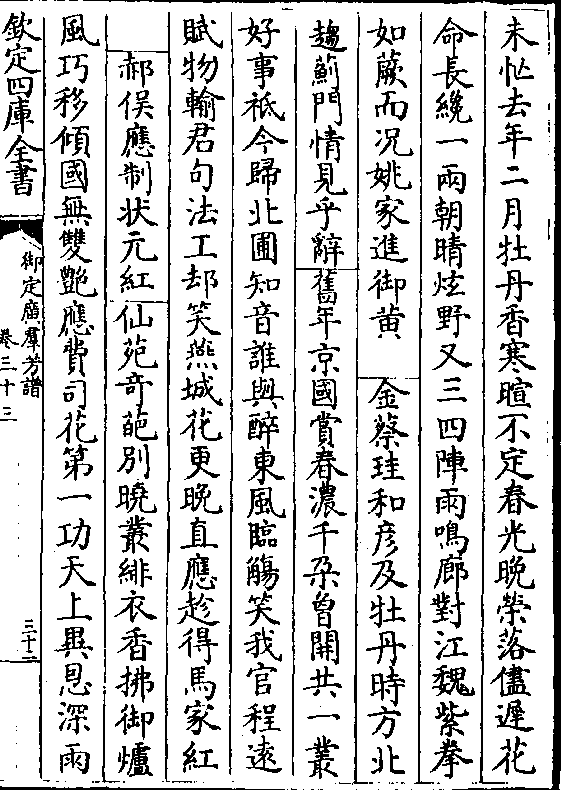 未忙去年二月牡丹香寒暄不定春光晚榮落儘遲花
命長纔一兩朝晴炫野又三四陣雨鳴廊對江魏紫拳
如蕨而况姚家進御黄 金蔡珪和彦及牡丹時方北
趨薊門情見乎辭舊年京國賞春濃千朶曾開共一叢
好事祗今歸北圃知音誰與醉東風臨觴笑我官程逺
賦物輸君句法工却笑燕城花更晚直應趁得馬家紅
郝俣應制狀元紅仙苑竒葩别曉叢緋衣香拂御爐
風巧移傾國無雙艷應費司花第一功天上異恩深雨
欽定四庫全書
御定廣羣芳譜
卷三十三
三十二